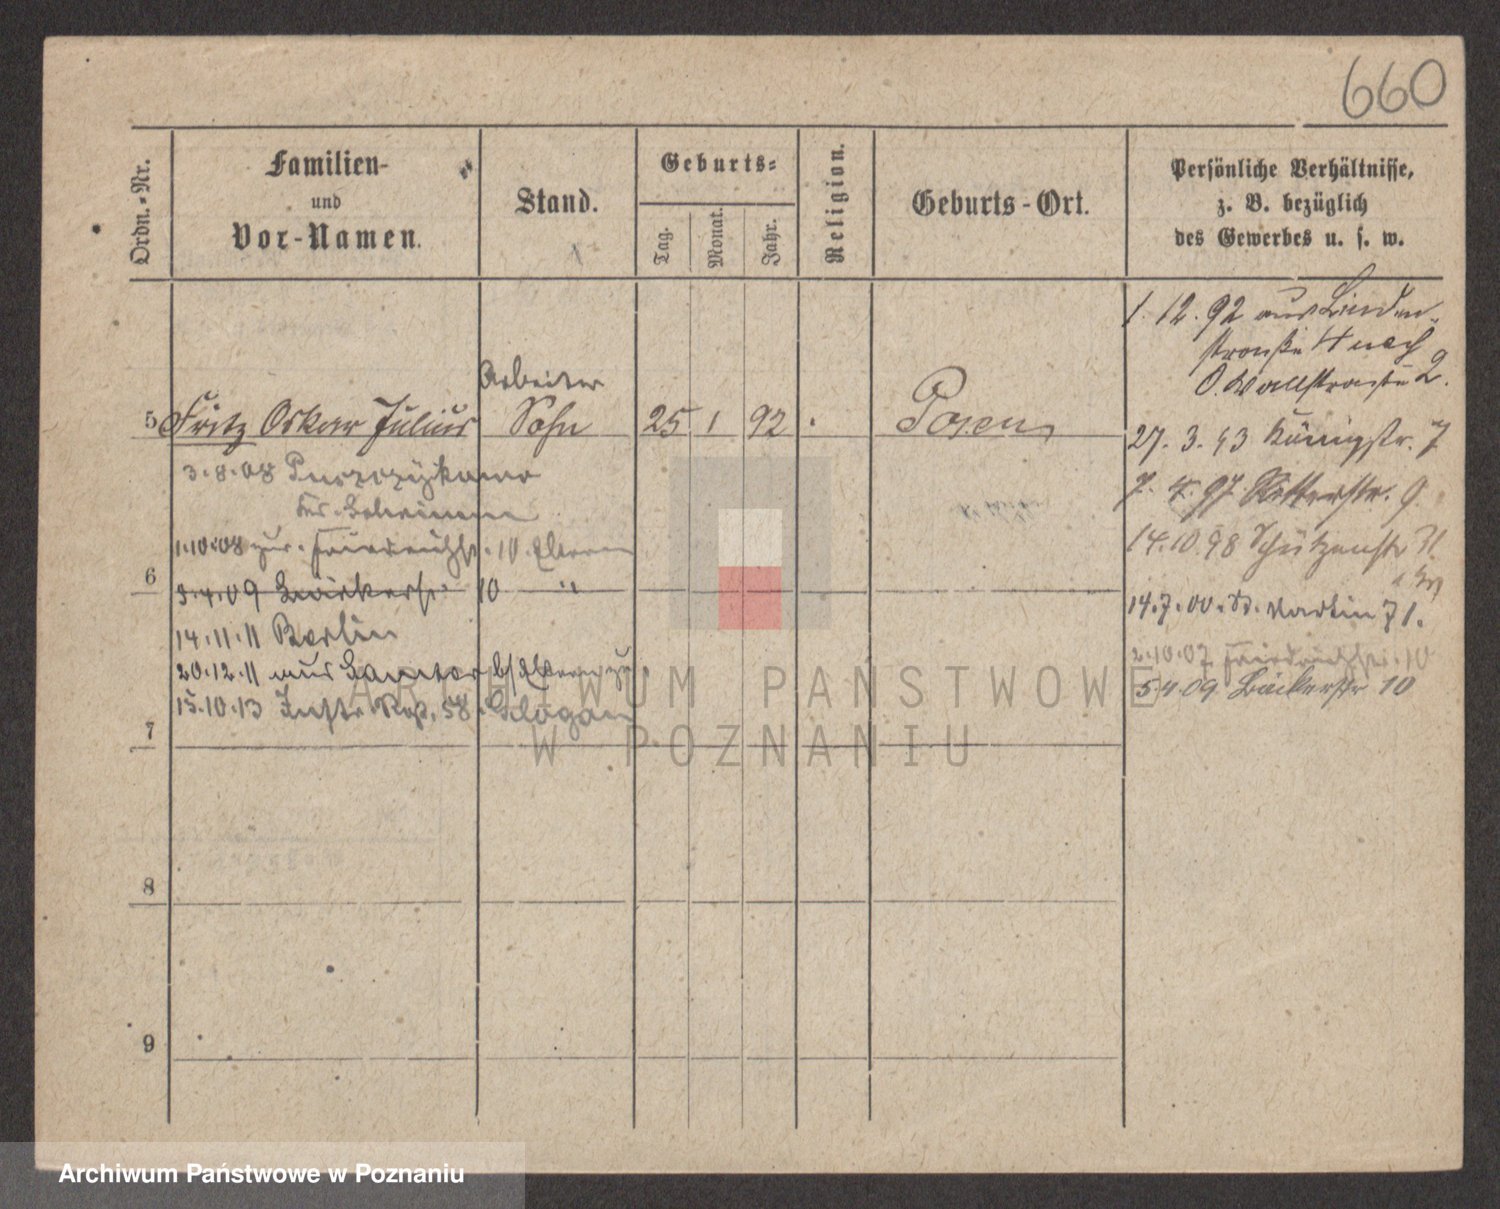 660
Ordn.-Nr.
Familien-
und
Vor-Namen.
Stand.
Geburts-
Tag.
Monat.
Jahr.
Religion.
Geburts-Ort.
Persönliche Verhältnisse,
z. B. bezüglich
des Gewerbes u. s. w.
1. 12. 92 aus Linden-
straße 4 nach
O. Wallstraße 2.
Arbeiter
5 Fritz Oskar Julius Sohn 25 1 92 Posen
27. 3. 93 Königstr. 7
3.8.08
7. 4. 97 Ritterstr. 9
1.10.08 zur. Friedrichstr. 10. Eltern
14.10.98 Schützenstr 31
6
5.4.09 Bäckerstr 10 "
14.7.00. St. Martin 71.
14.11.11 Berlin
2.10.07 Friedrichstr. 10
20.12.11 aus b/Eltern
5.4.09. Bäckerstr 10
15.10.13 58. Glogau
7
8
9
ARCHIWUM PAŃSTWOWE
W POZNANIU
Archiwum Państwowe w Poznaniu